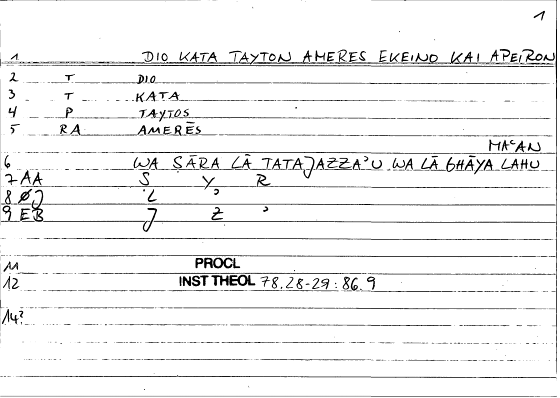 1
1 DIO KATA TAYTON AMERES EKEINO KAI APEIRON
2 T DIO
3 T KATA
4 P TAYTOS
5 RA AMERĒS
MAʿAN
6 WA ṢĀRA LĀ TATAJAZZAʾU WA LĀ GHĀYA LAHU
7 AA Ṣ Y R
8 ØJ L ʾ
9 EB J Z ʾ
11 PROCL
12 INST THEOL 78.28-29: 86.9
14?